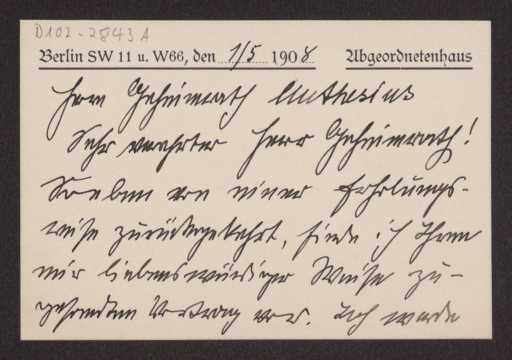 D102-2843 A
Berlin SW 11 u. W66, den 1/5 1908 Abgeordnetenhaus
Herrn Geheimrath Muthesius
Sehr verehrter Herr Geheimrath!
Soeben von einer Erholungs-
reise zurückgekehrt, finde ich Ihren
mir liebenswürdiger Weise zu-
gesandten Vortrag vor. Ich werde